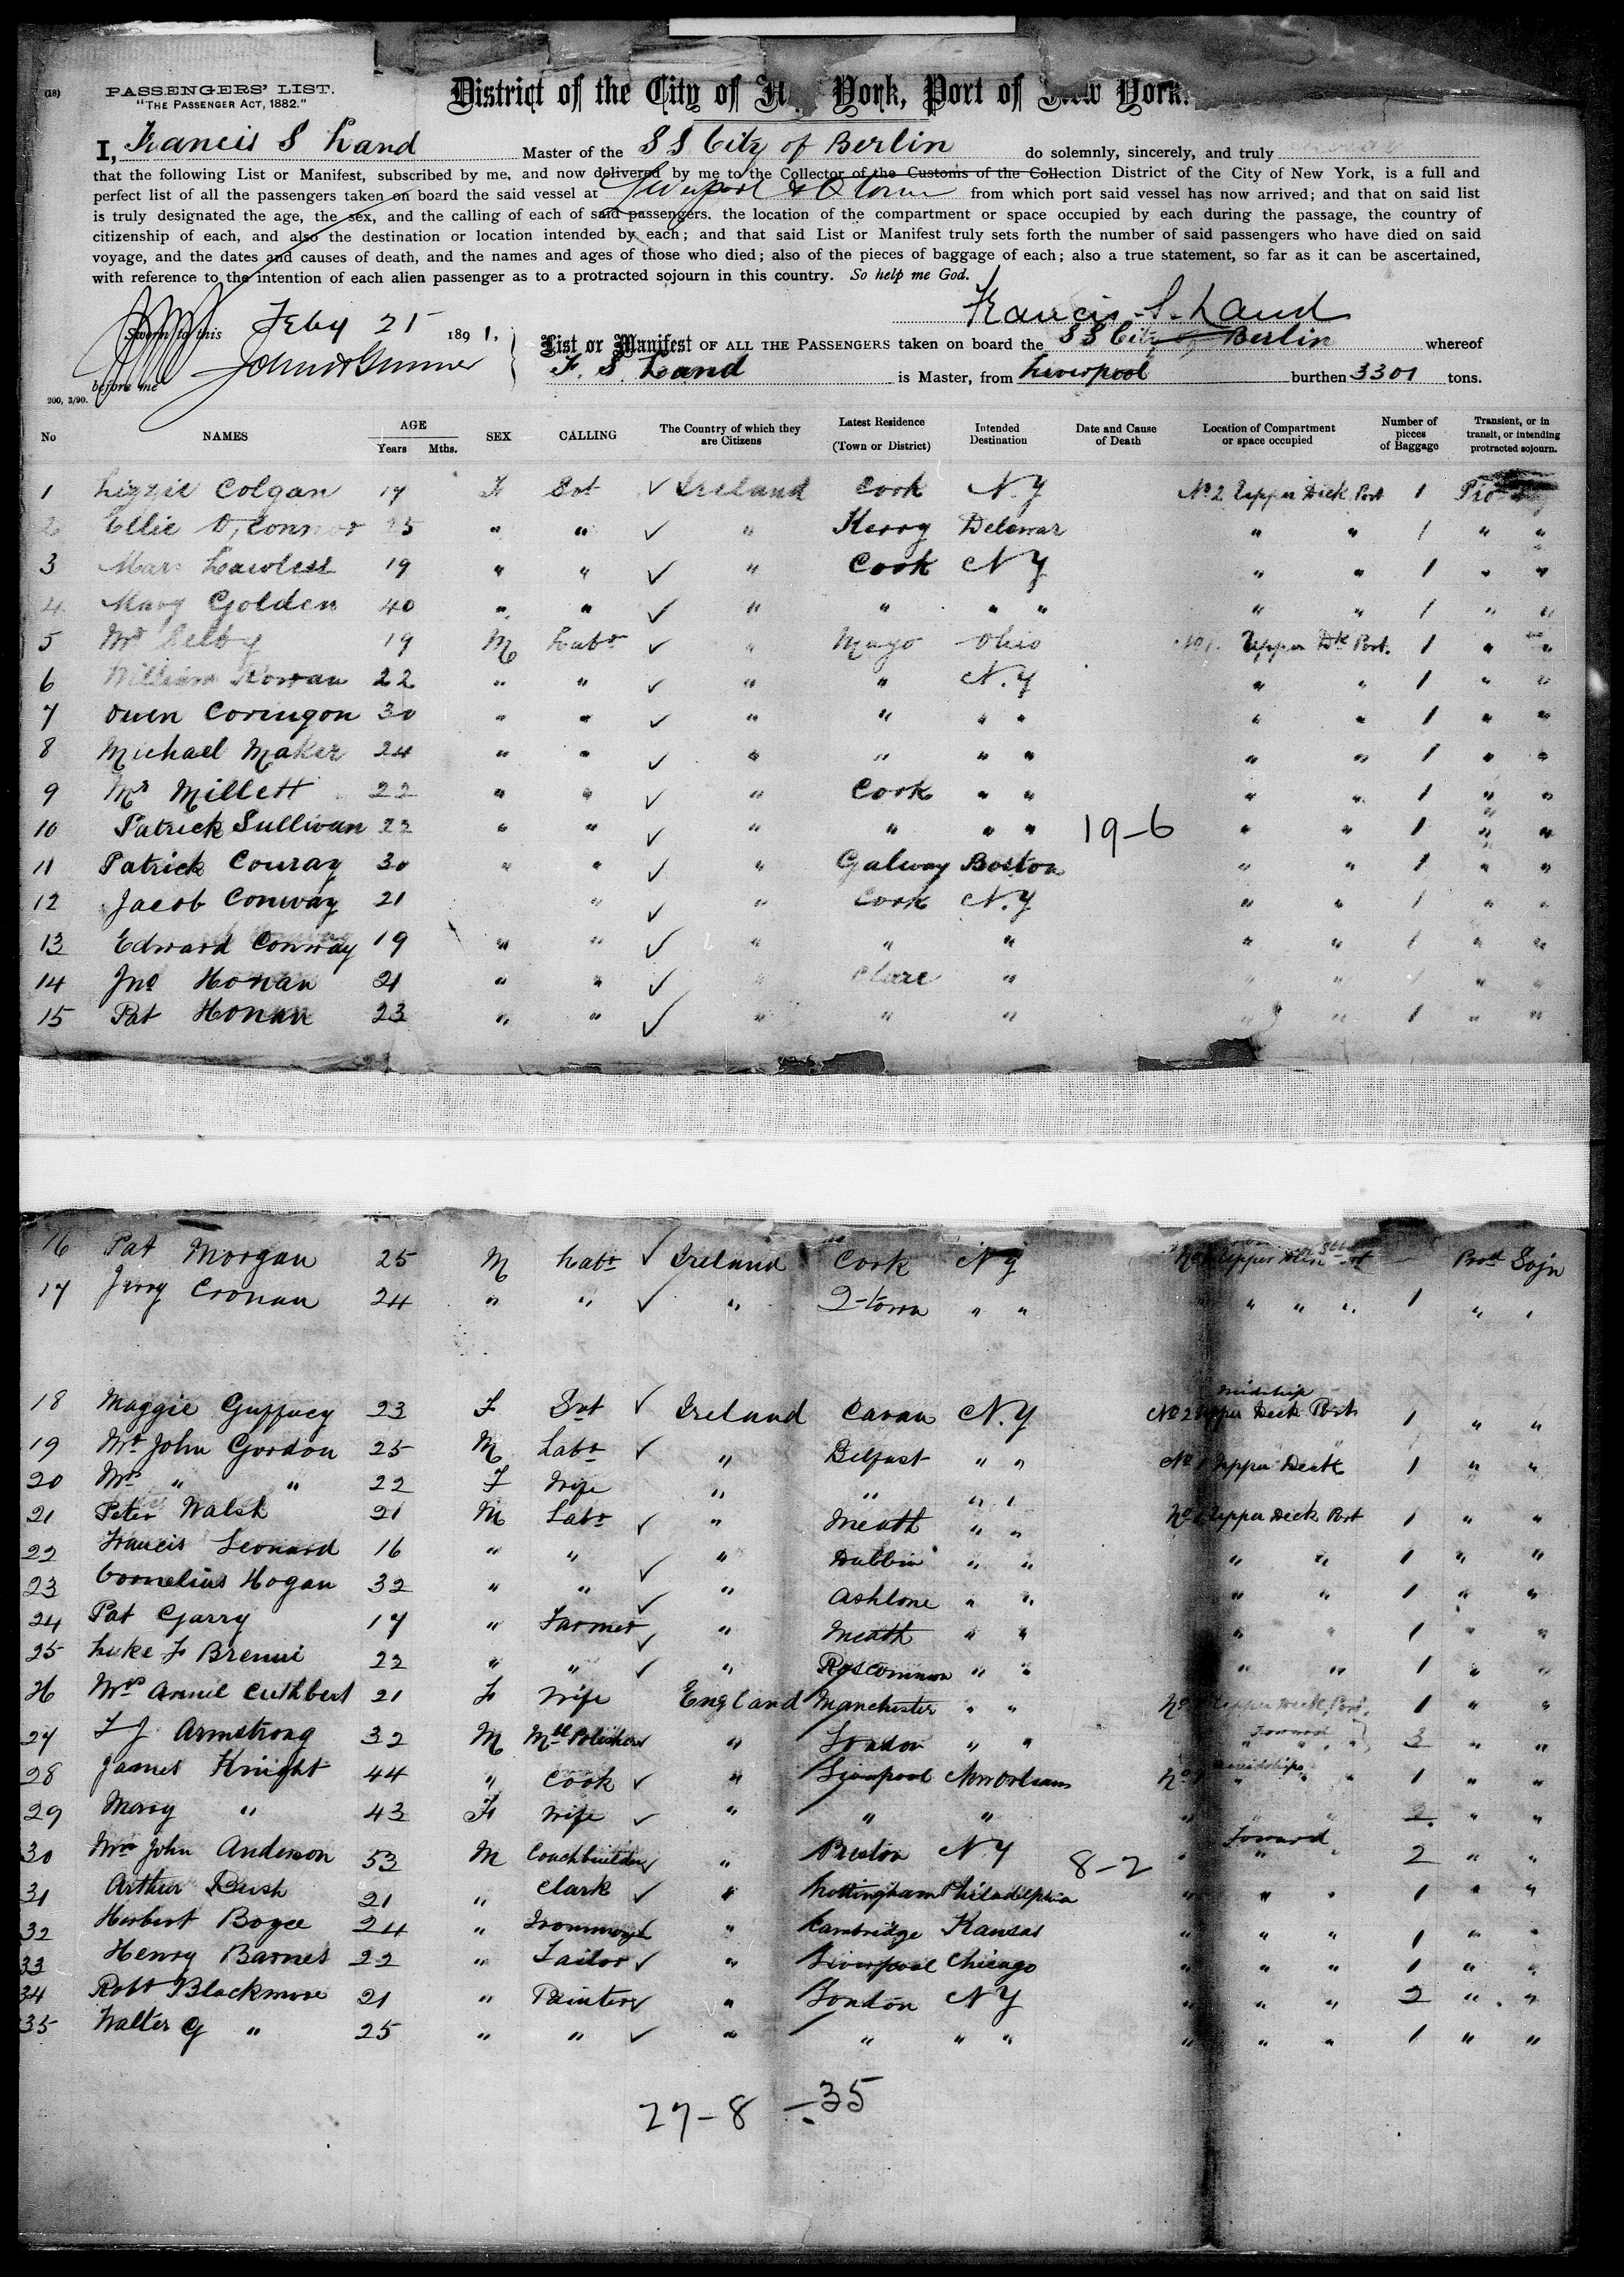 (18)
PASSENGERS' LIST.
"THE PASSENGER ACT, 1882."
District of the City of New York, Port of New York.
I, Francis S Land Master of the S S City of Berlin do solemnly, sincerely, and truly
that the following List or Manifest, subscribed by me, and now delivered by me to the Collector of the Customs of the Collection District of the City of New York, is a full and
perfect list of all the passengers taken on board the said vessel at Liverpool & Q Town from which port said vessel has now arrived; and that on said list
is truly designated the age, the sex, and the calling of each of said passengers. the location of the compartment or space occupied by each during the passage, the country of
citizenship of each, and also the destination or location intended by each; and that said List or Manifest truly sets forth the number of said passengers who have died on said
voyage, and the dates and causes of death, and the names and ages of those who died; also of the pieces of baggage of each; also a true statement, so far as it can be ascertained,
with reference to the intention of each alien passenger as to a protracted sojourn in this country. So help me God.
Francis S. Land
Sworn to this Feby 21 1891,
before me
List or Manifest OF ALL THE PASSENGERS taken on board the S S City of Berlin whereof
F. S. Land is Master, from Liverpool burthen 3301 tons.
200, 3/90.
No NAMES AGE Years Mths. SEX CALLING The Country of which they are Citizens Latest Residence (Town or District) Intended Destination Date and Cause of Death Location of Compartment or space occupied Number of pieces of Baggage Transient, or in transit, or intending protracted sojourn.
1 Lizzie Colgan 17 F Svt ✓ Ireland Cork N.Y No 2 Upper Deck Port 1
2 Ellie O'Connor 25 " " ✓ " Kerry Delawar " " 1 " "
3 Mary Lawless 19 " " ✓ " Cork N Y " " 1 " "
4 Mary Golden 40 " " ✓ " " " " " " 1 " "
5 Mr Selby 19 M Labr ✓ " Mayo Ohio No 1. Upper Dk Port. 1 " "
6 William Rowan 22 " " ✓ " " N.Y " " 1 " "
7 Owen Coringon 30 " " ✓ " " " " " " 1 " "
8 Michael Maker 24 " " ✓ " " " " " " 1 " "
9 Mr Millett 22 " " ✓ " Cork " " " " 1 " "
10 Patrick Sullivan 22 " " ✓ " " " " 19-6 " " 1 " "
11 Patrick Couray 30 " " ✓ " Galway Boston " " 1 " "
12 Jacob Conway 21 " ✓ " Cork N.Y " " 1 " "
13 Edward Conway 19 " " ✓ " " " " " 1 " "
14 Jno Honan 21 " " ✓ " Clare " " " 1 " "
15 Pat Honan 23 " " ✓ " " " " " 1 " "
16 Pat Morgan 25 M Labr ✓ Ireland Cork N Y Upper — Prot Sojn
17 Jerry Cronan 24 " " ✓ " Q-town " " " " " 1 " "
18 Maggie Guffney 23 F Svt ✓ Ireland Cavan N.Y No 2 midship Upper Deck Port 1 " "
19 Mr John Gordon 25 M Labr ✓ " Belfast " " No 1 Upper Deck 1 " "
20 Mrs " " 22 F Wife " " " "
21 Peter Walsh 21 M Labr ✓ " Meath " " No 1 Upper Deck Port 1 " "
22 Francis Leonard 16 " " ✓ " Dublin " " " " 1 " "
23 Cornelius Hogan 32 " " ✓ " Athlone " " " " 1 " "
24 Pat Garry 17 " Farmer ✓ " Meath " " " " 1 " "
25 Luke F Brenni 22 " " ✓ " Roscommon " " " " 1 " "
26 Mrs Annie Cuthbert 21 F Wife England Manchester " " No Upper Deck Port. 1 " "
27 T J Armstrong 32 M Mbl Polisher ✓ " London " " Forward " " " 3 " "
28 James Knight 44 " Cook ✓ " Liverpool New Orleans No 1 amidships " " " 1 " "
29 Mary " 43 F Wife ✓ " " " " " " 2 " "
30 Mr John Anderson 53 M Coachbuilder ✓ " Preston N.Y 8-2 " Forward " " 2 " "
31 Arthur Bush 21 " Clark ✓ " Nottingham Philadelphia " " " 1 " "
32 Herbert Boyce 24 " Ironmongr ✓ " Cambridge Kansas " " " 1 " "
33 Henry Barnes 22 " Tailor ✓ " Liverpool Chicago " " " 1 " "
34 Robt Blackmore 21 " Painter ✓ " London N Y " " " 2 " "
35 Walter G " 25 " " ✓ " " " " " " " 1 " "
27-8 — 35